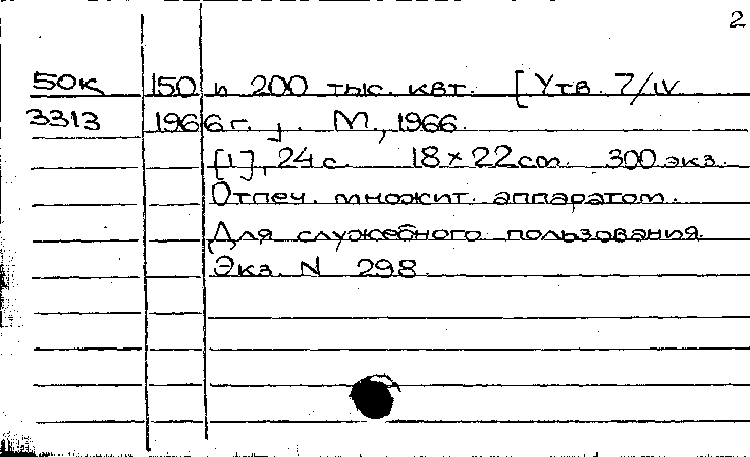 2
50К 150 и 200 тыс. квт. [Утв. 7/IV
3313 1966 г.]. М., 1966.
[1], 24 с. 18 × 22 cm. 300 экз.
Отпеч. множит. аппаратом.
Для служебного пользования.
Экз. N 298